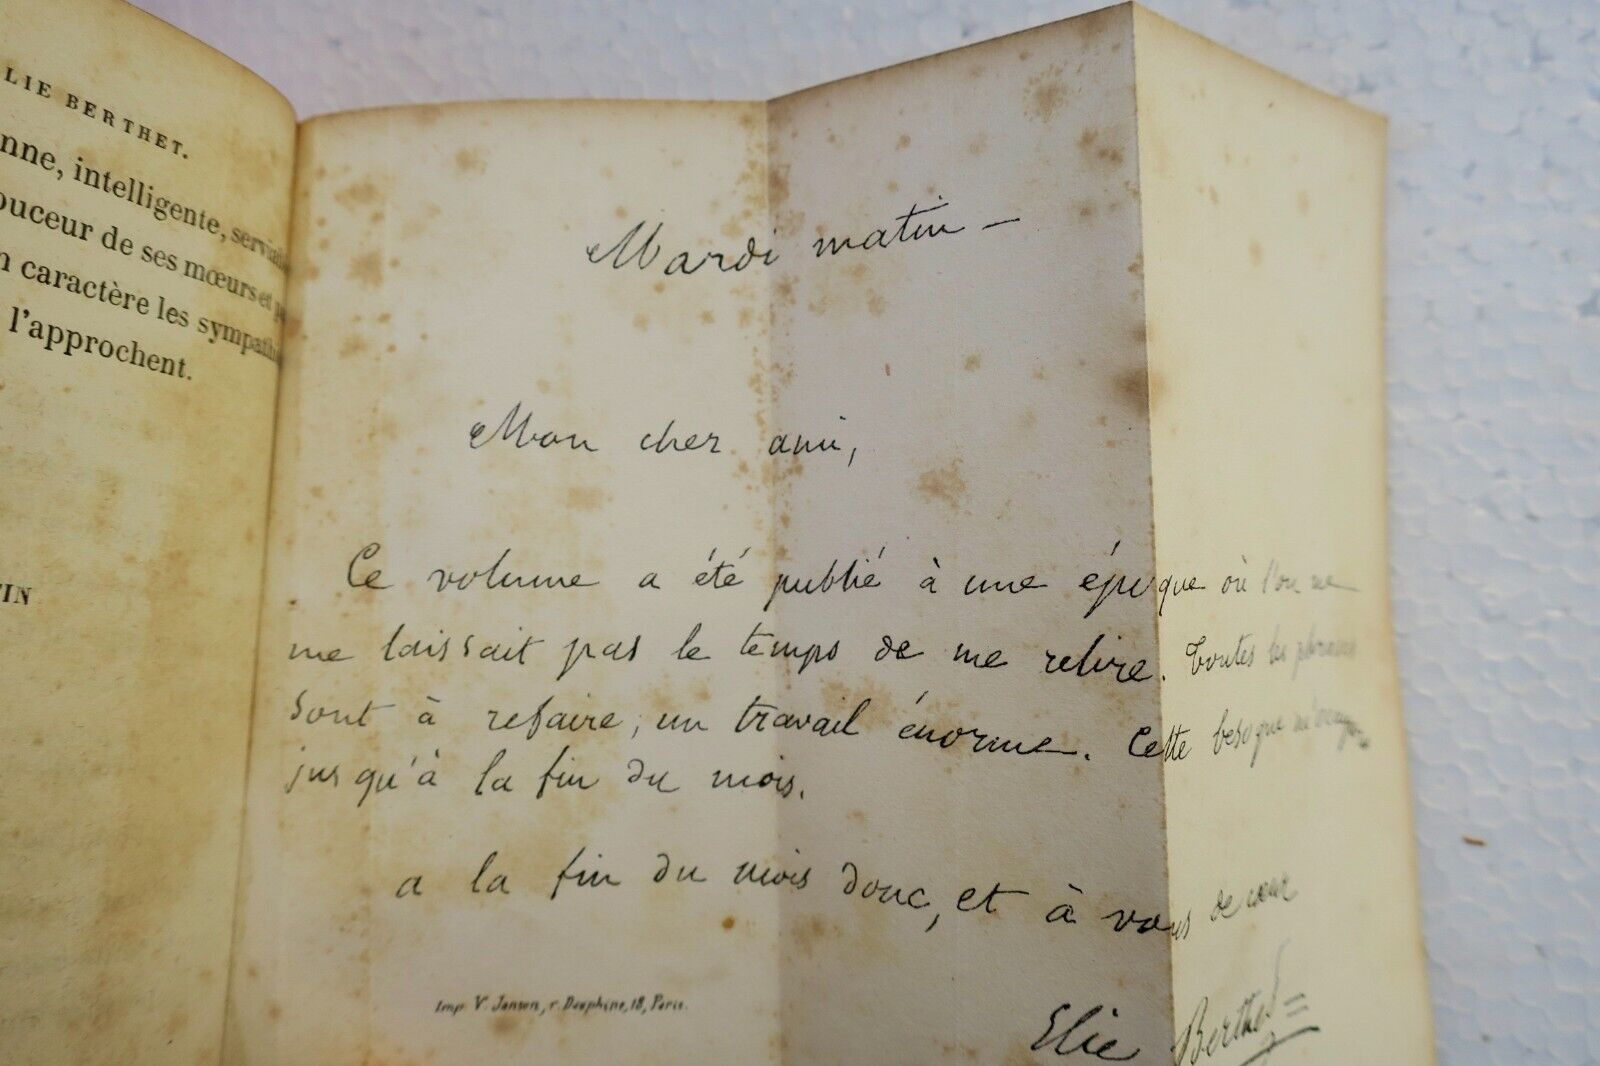 LIE BERTHET.
nne, intelligente, servia
ouceur de ses mœurs et p
n caractère les sympathi
l'approchent.
TIN
Mardi matin —
Mon cher ami,
Ce volume a été publié à une époque où l'on ne
me laissait pas le temps de me relire. Toutes les phrases
sont à refaire; un travail énorme. Cette besogne m'occupera
jusqu'à la fin du mois.
a la fin du mois donc, et à vous de cœur
Elie Berthet
Imp. V. Janson, r. Dauphine, 18, Paris.